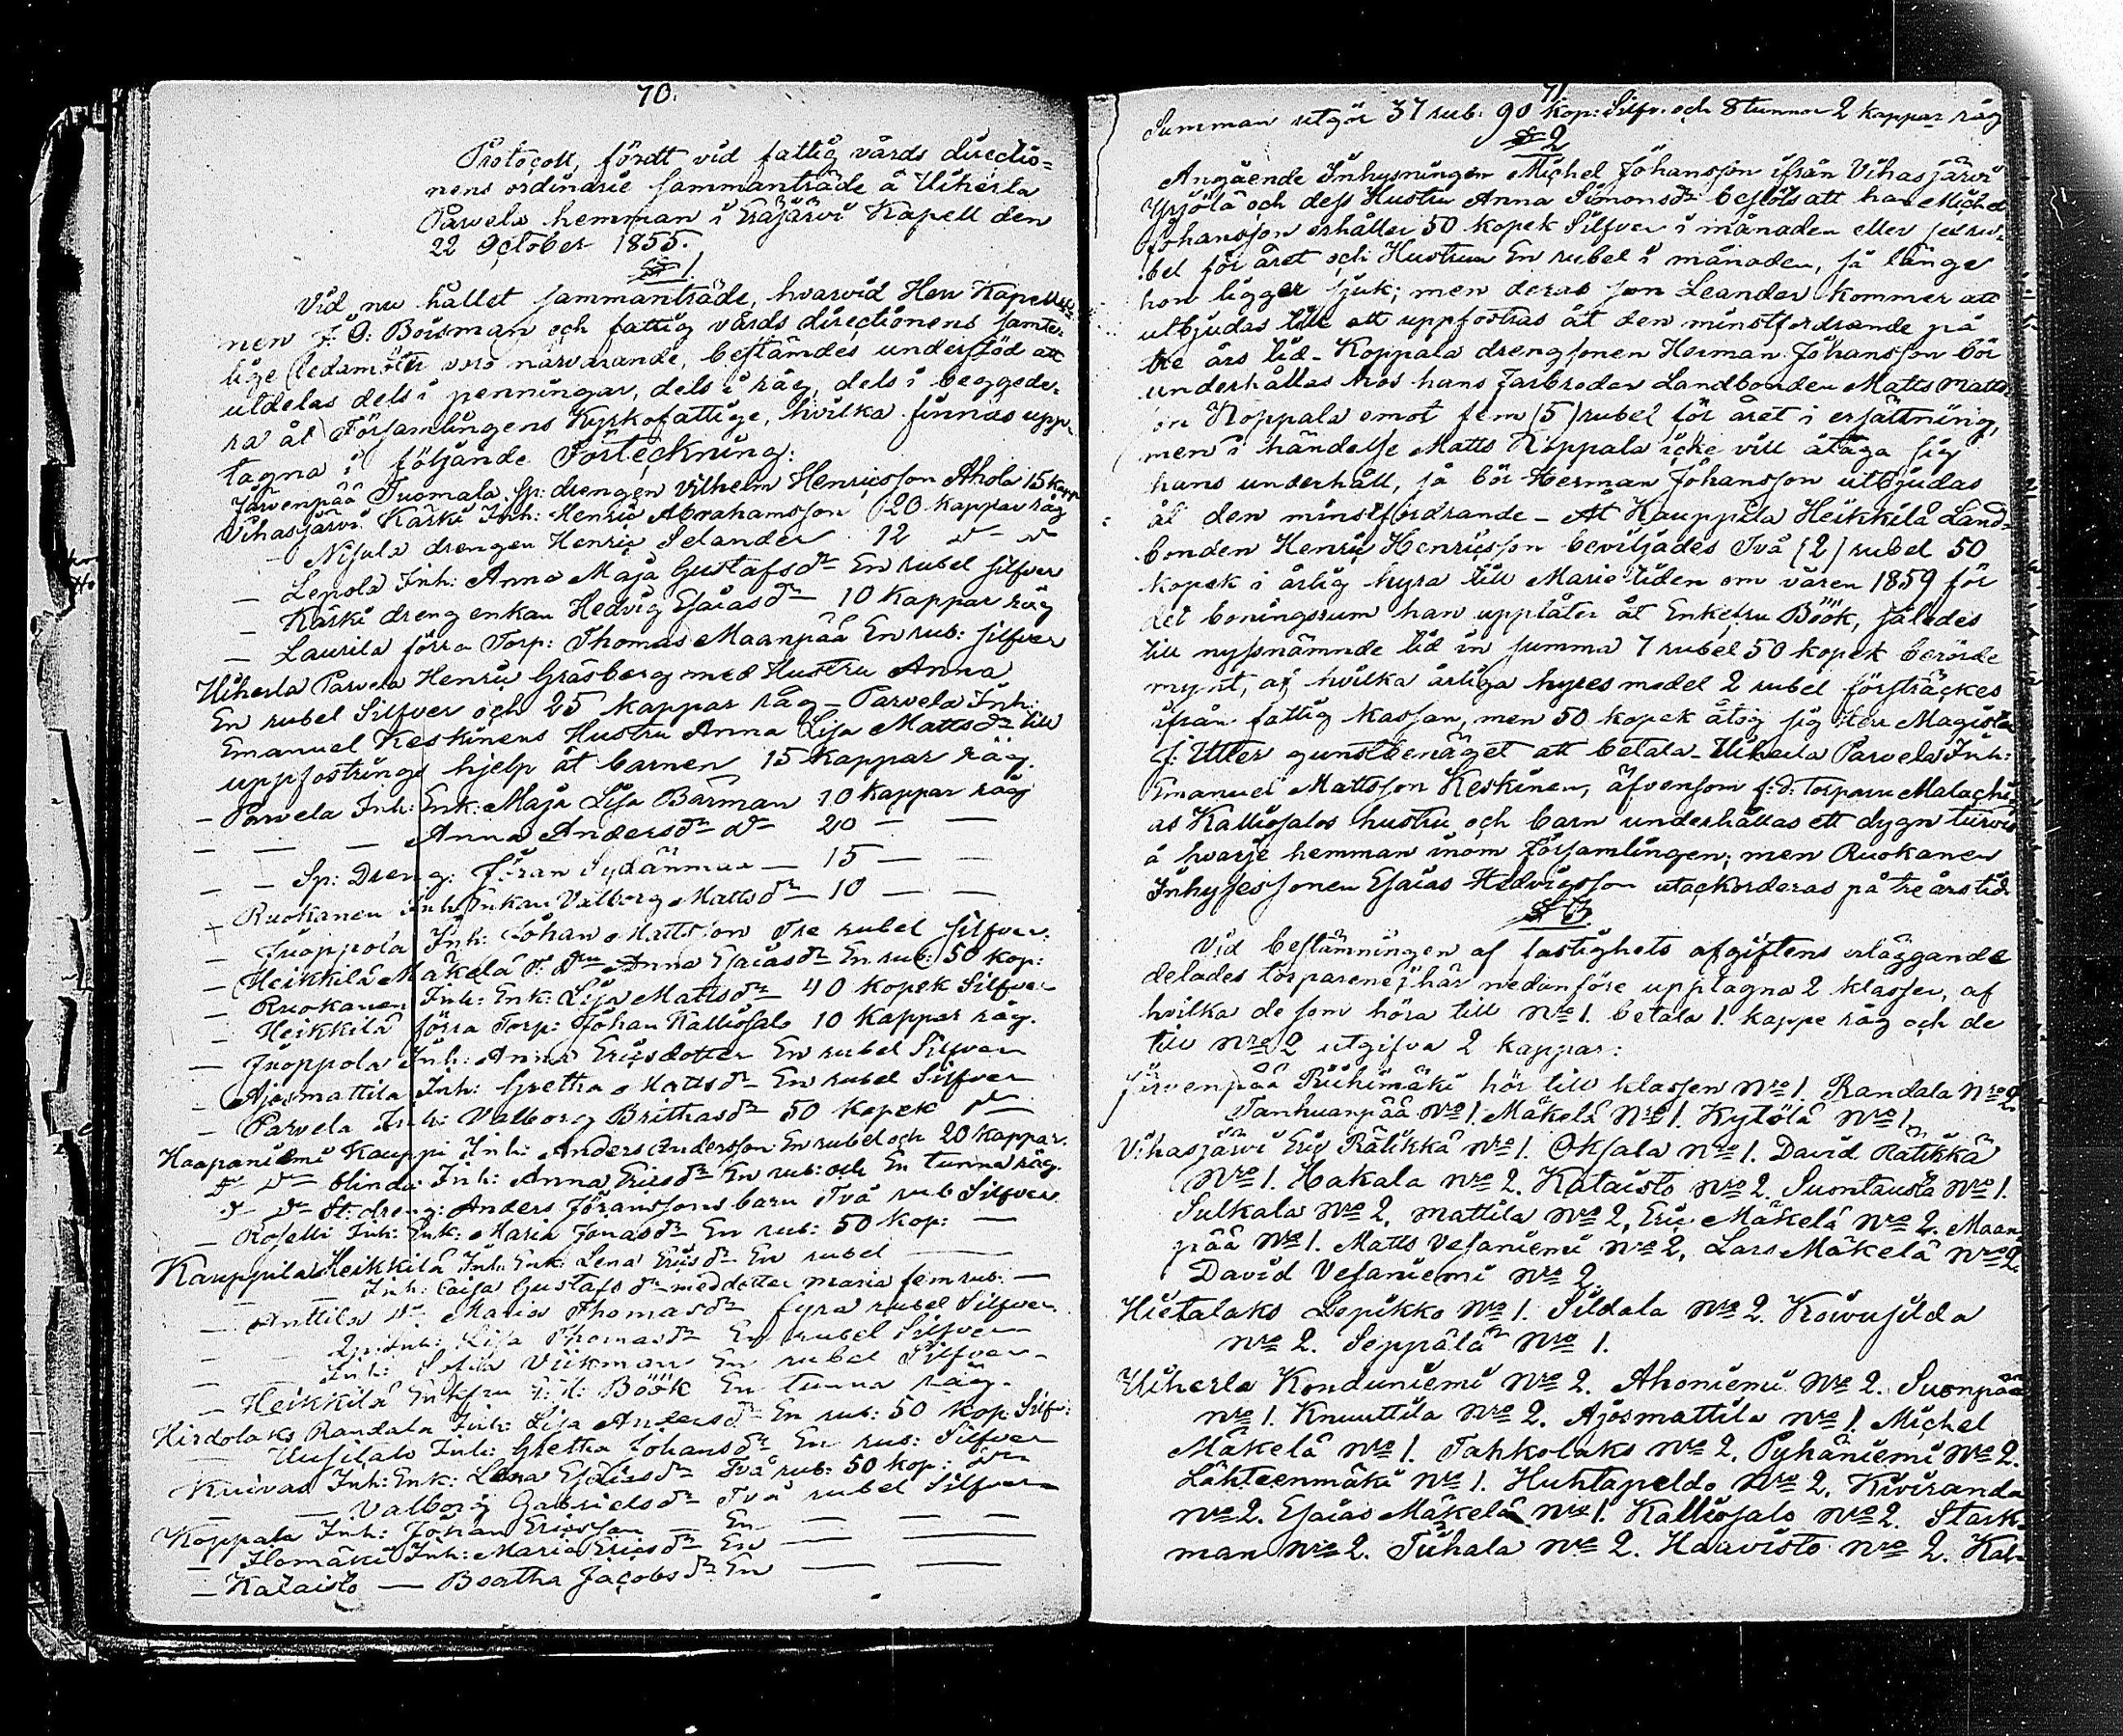 70.
Protocoll, fördt vid fattig vårds directio=
nens ordinarie sammanträde å Uiherla
Parvela hemman i Eräjärvi Kapell den
22 October 1855.
§ 1.
Vid nu hållet sammanträde, hvarvid Herr Kapella-
nen J. O. Boisman och fattig vårds directionens samte-
lige ledamöter voro närvarande, bestämdes understöd att
utdelas dels i penningar, dels i råg, dels i beggede-
ra åt Församlingens Kyrkofattige, hvilka finnas upp-
tagna i följande Förteckning:
Järvenpää Tuomala Sp: drengen Vilhelm Henricsson Ahola 15 kapp
Vihasjärvi Kärki Inh: Henric Abrahamsson 20 kappar råg
— Nisula drengen Henric Selander 12 d:o d:o
— Lepola Inh: Anna Maja Gustafsdr En rubel silfver
— Kärki dreng enkan Hedvig Esaiasdr 10 kappar råg
— Laurila förra Torp: Thomas Maanpää En rub: silfver
Uiherla Parvela Henric Gråsberg med Hustru Anna
En rubel Silfver och 25 kappar råg — Parvela Inh:
Emanuel Keskinens Hustru Anna Lisa Mattsdr till
uppfostrings hjelp åt barnen 15 kappar råg.
— Parvela Inh: Enk: Maja Lisa Barman 10 kappar råg
— — — Anna Andersdr d:o 20 — —
— — Sp: Dreng: Jöran Sydänmaa — 15 — —
— Ruokanen Inh: Enkan Valborg Mattsdr — 10 — —
— Juoppola Inh: Johan Mattsson Tre rubel silfver:
— Heikkilä Mäkelä Anna Esaiasdr En rub: 50 kop:
— Ruokanen Inh: Enk: Lisa Mattsdr 40 kopek Silfver
— Heikkilä förra Torp: Johan Kalliosalo 10 kappar råg.
— Juoppola Inh: Anna Ericsdotter En rubel Silfver
— Ajosmattila Inh: Gretha Mattsdr En rubel Silfver
— Parvela Inh: Valborg Brithasdr 50 kopek d:o
Haapaniemi Kauppi Inh: Anders Andersson En rubel och 20 kappar.
d:o d:o blinda Inh: Anna Ericsdr En rub: och En tunna råg.
d:o d:o St: dreng: Anders Jöranssons barn Två rub Silfver
— Roselli Inh: Enk: Maria Jonasdr En rub: 50 kop: —
Kauppila Heikkilä Inh: Enk: Lena Ericsdr En rubel —
— — Inh: Caisa Gustafsdr med dotter Maria fem rub: —
— Anttila d:o Maria Thomasdr fyra rubel Silfver
— — Inh: Lisa Thomasdr En rubel Silfver
— — Inh: Sofia Viikman En rubel Silfver
— Heikkilä Enkfru Böök En tunna råg.
Hirdolaks Randala Inh: Lisa Andersdr En rub: 50 kop Silfv:
— Uusitalo Inh: Gretha Johansdr En rub: Silfver
Kuivas Inh: Enk: Lena Esaiasdr Två rub: 50 kop: d:o
— — Valborg Gabrielsdr Två rubel Silfver
Koppala Inh: Johan Ericsson — En — — —
— Ilomäki Inh: Maria Ericsdr En — —
— Kataisto — Beatha Jacobsdr En — —
71.
Summan utgör 37 rub: 90 kop: Silfv. och 8 tunnor 2 kappar råg
§ 2
Angående Inhysningen Michel Johansson ifrån Vihasjärvi
Yrjölä och dess Hustru Anna Simonsdr beslöts att han Michel
Johansson erhåller 50 kopek Silfver i månaden eller sex ru-
bel för året och Hustrun En rubel i månaden, så länge
hon ligger sjuk; men deras son Leander kommer att
utbjudas till att uppfostras åt den minstfordrande på
tre års tid — Koppala drengsonen Herman Johansson bör
underhållas hos hans farbroder Landbonden Matts Matts-
son Koppala emot fem (5) rubel för året i ersättning,
men i händelse Matts Koppala icke vill åtaga sig
hans underhåll, så bör Herman Johansson utbjudas
åt den minstfordrande — Åt Kauppila Heikkilä Land-
bonden Henric Henricsson beviljades Två (2) rubel 50
kopek i årlig hyra till Marie tiden om våren 1859 för
det boningsrum han upplåter åt Enkefru Böök, således
till nyssnämnde tid in summa 7 rubel 50 kopek berörde
mynt, af hvilka årliga hyresmedel 2 rubel försträckes
ifrån fattig kassan, men 50 kopek åtog sig Herr Magister
J: Utter gunstbenäget att betala — Uiherla Parvela Inh:
Emanuel Mattsson Keskinen, äfvensom f. d. Torparen Malachi-
as Kalliosalos hustru och barn underhållas ett dygn turvis
å hvarje hemman inom församlingen; men Ruokanen
Inhysessonen Esaias Hedvigsson utackorderas på tre års tid
§ 3.
Vid bestämningen af fastighets afgiftens erläggande
delades torparene i här nedanföre upptagna 2 klasser, af
hvilka de som höra till Nro 1. betala 1. kappe råg och de
till Nro 2 utgifva 2 kappar:
Järvenpää Riihimäki hör till klassen Nro 1. Randala Nro 2
Tanhuanpää Nro 1. Mäkelä Nro 1. Kytölä Nro 1,
Vihasjärvi Eric Rätikkä Nro 1. Oksala Nro 1. David Rätikkä
Nro 1. Hakala Nro 2. Kataisto Nro 2. Suontausta Nro 1.
Sulkala Nro 2, Mattila Nro 2, Eric Mäkelä Nro 2. Maan-
pää Nro 1. Matts Vesaniemi Nro 2, Lars Mäkelä Nro 2.
David Vesaniemi Nro 2.
Hietalaks Lepikko Nro 1. Sildala Nro 2. Koivusilda
Nro 2. Seppälä Nro 1.
Uiherla Konduniemi Nro 2. Ahoniemi Nro 2. Suonpää
Nro 1. Knuuttila Nro 2. Ajosmattila Nro 1. Michel
Mäkelä Nro 1. Tahkolaks Nro 2, Pyhäniemi Nro 2.
Lähteenmäki Nro 1. Huhtapeldo Nro 2, Kiviranda
Nro 2. Esaias Mäkelä Nro 1. Kalliosalo Nro 2. Stark-
man Nro 2. Tuhala Nro 2. Haavisto Nro 2. Kal-